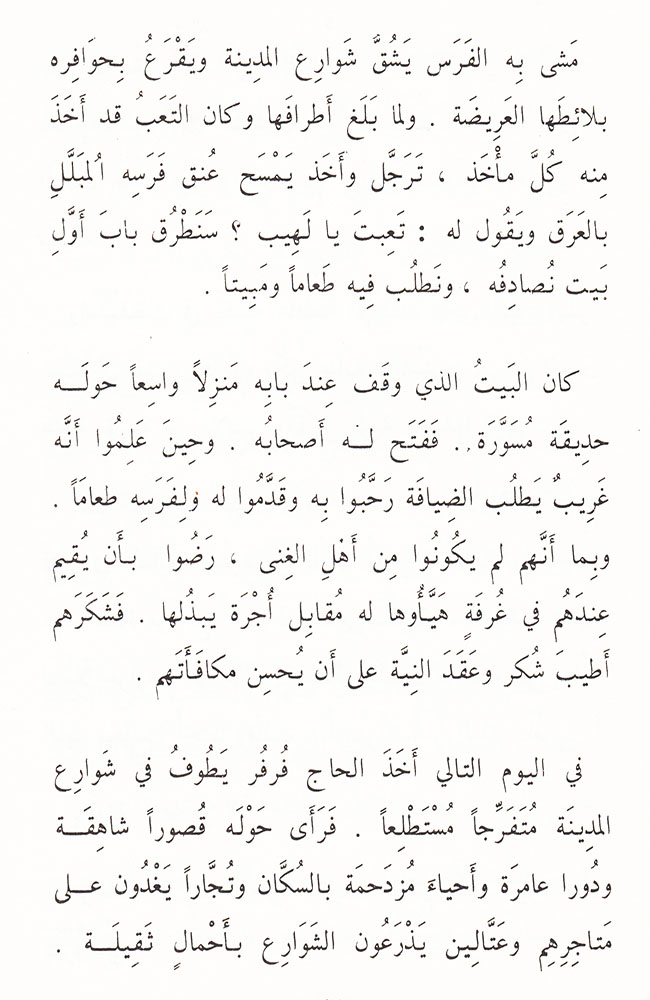 مَشى بِه الفَرَس يَشُقُّ شَوارِع المدِينة ويَقْرَعُ بِحوَافِره
بلائِطَها العَرِيضَة . ولما بَلَغ أَطرافَها وكان التَعَبُ قد أَخَذَ
مِنه كُلَّ مأْخَذ ، تَرَجَّل وأَخَذ يَمْسَح عُنق فَرَسِه المبَلَّلِ
بالعَرَق ويَقُول له : تَعِبتَ يا لَهِيب ؟ سَنَطْرُق بابَ أَوَّلِ
بَيت نُصادِفُه ، ونَطلُب فِيه طَعاماً ومَبِيتاً .
كان البَيتُ الذي وقَف عِندَ بابِه مَنزِلاً واسِعاً حَولَـــه
حدِيقَة مُسَوَّرَة .. فَفَتَح لـــه أَصحابُه . وحِينَ عَلِمُوا أَنَّه
غَرِيبٌ يَطلُب الضِيافَة رَحَّبُوا بِه وقَدَّمُوا له ولِفَرَسِه طعامَاً .
وبِما أَنَّهم لم يكُونُوا مِن أَهْلِ الغِنى ، رَضُوا بـأَن يُقِيم
عِندَهُم في غُرفَةٍ هَيَّأُوها له مُقابِل أُجْرَة يَبذُلها . فَشَكَرَهم
أَطيبَ شُكر وعَقَدَ النِيَّة على أَن يُحسِن مكافَأَتَهم .
في اليوم التالي أَخَذَ الحاج فُرفُر يَطُوفُ في شَوارِع
المدِينَة مُتَفَرِّجاً مُسْتَطْلِعاً . فَرَأَى حَوْلَه قُصوراً شاهِقَـــة
ودُورا عامرَة وأَحياءَ مُزدَحمَة بالسُكَّان وتُجَّاراً يَغْدُون عـــلى
مَتاجِرِهِم وعَتَّالِين يَذْرَعُون الشَوَارِع بـأَحْمالٍ ثَقِيلَـــة .